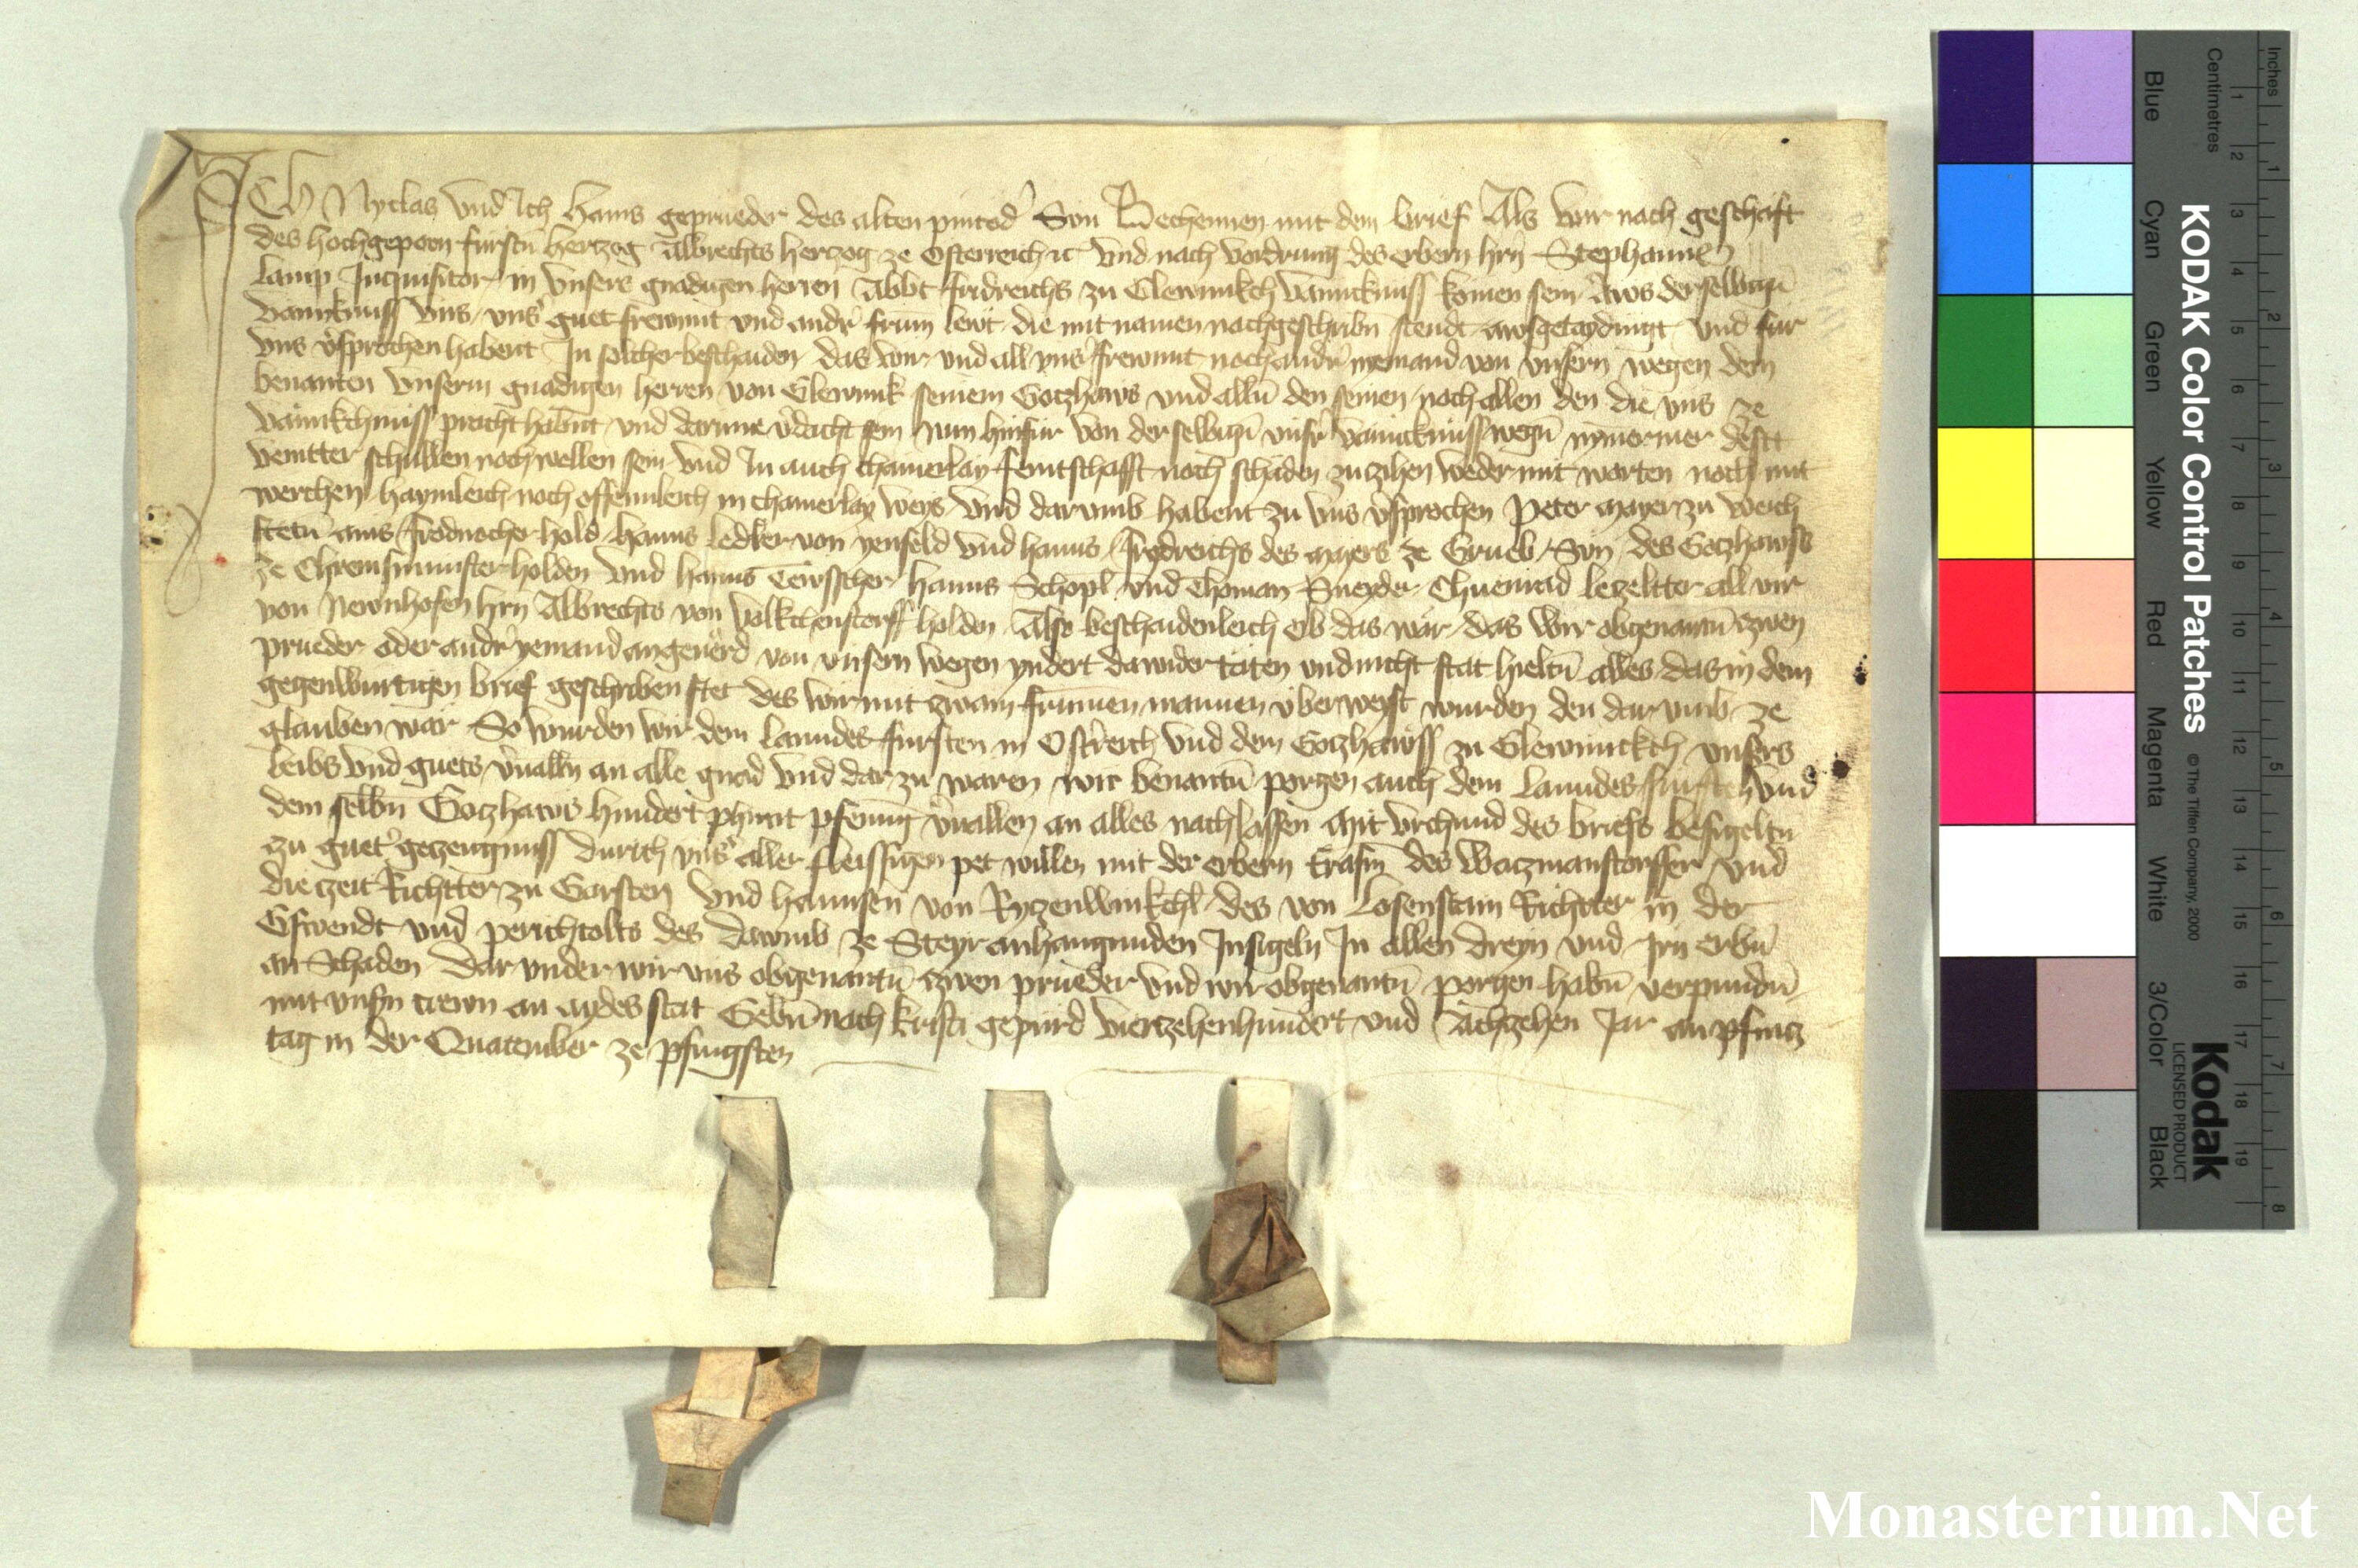 ICh Nyclas vnd Ich Hanns geprueder des alten Son Bechennen mit dem brief Als wir nach geschäft
des hochgeporn fürstn̄ hertzog Albrechts herzog ze Osterreich ꝛc vnd nach vordrung des erbern hrn̄ Stephanns
lamp Inquisitor in vnsers gnadigen herren Abbt fridreichs zu Glewnikch vannknuss komen sein Aws derselbign̄
vannknuss vns vnsˀ guet frewnnt vnd andˀ frum lewt die mit namen nachgeschribn̄ stendt awsgetaydingt vnd für
vns vˀsprochen habent In solcher beschaiden das wir vnd all vnsˀ frewnnt noch andˀ nyemand von vnsern wegen dem
benanten vnserm gnadigen herren von Glewnik seinem Gotzhaws vnd alln̄ den seinen noch allen den die vns ze
vannkchnuss pracht habnt vnd darinne vˀdacht sein Nun hinfür von derselbign̄ vnsrˀ vannknuss wegn̄ nymermer destt
veintter schullen noch wellen sein vnd In auch chainerlay feintschafft noch schaden zuziehen weder mit worten noch mit
werchen haymleich noch offennleich in chainerlay weys vnd darumb habent zu vns vˀsprochen Peter mayer zu Weich
stetn̄ hold Hanns ledrer von yenfeld vnd hanns fridreichs des mayers ze Grueb Son des Gotzhawss
ze Chremsmünster holden vnd hanns Tewsscher hanns Schopl vnd Thoman Sneyder Chuenrad lezeltter all vir
von Newnhofen hrn̄ Albrechts von Volkchenstorff holden Also beschaidenleich ob das wär das wir obgenantn̄ zwen
prueder oder andˀ yemand angeuerd von vnsern wegen yndert dawider täten vnd nicht stät hieltn̄ alles das in dem
gegenwurtigen brief geschriben stet des wir mit zwain frummen mannen vberweyst wurden den darumb ze
glauben wär So wurden wir dem lanndesfürsten in Ostˀreich vnd dem Gotzhawss zu Glewnickch vnsers
leibs vnd guets vˀualln an alle gnad vnd darzu wären wir benantn̄ porgen auch dem lanndesfürsten vnd
dem selbn Gotzhaws hundert phunt pfenning vˀuallen an alles nachlassen Mit vrchund des briefs besigeltn
zu guetˀ gezeugnuss durich vnsˀ aller fleissigen pet willen mit der erbern Erasm̄ des Watzmanstorffer vnd
die zeit Richtter zu Garsten vnd hannsen von Ryzenwinkchl des von Losenstain Richtter in der
Gswendt vnd perichtolts des ze Steyr anhangunden Insigeln In allen dreyn vnd irn erbn̄
an Schaden Dar vnder wir vns obgenantn̄ zwen prüeder vnd wir obgenantn̄ porgen habn̄ verpundn̄
mit vnsn̄ trewn an aydes stat Gebn̄ nach kristi gepurd viertzehenhundert vnd Achzehen Jar an pfincz
tag in der Quatember ze Pfingsten
KODAK Color Control Patches
© The Tiffen Company, 2000
Kodak
LICENSED PRODUCT
Blue
Cyan
Green
Yellow
Red
Magenta
White
3/Color
Black
Centimetres
1 2 3 4 5 6 7 8 9 10 11 12 13 14 15 16 17 18 19
Inches
1 2 3 4 5 6 7 8
Monasterium.Net